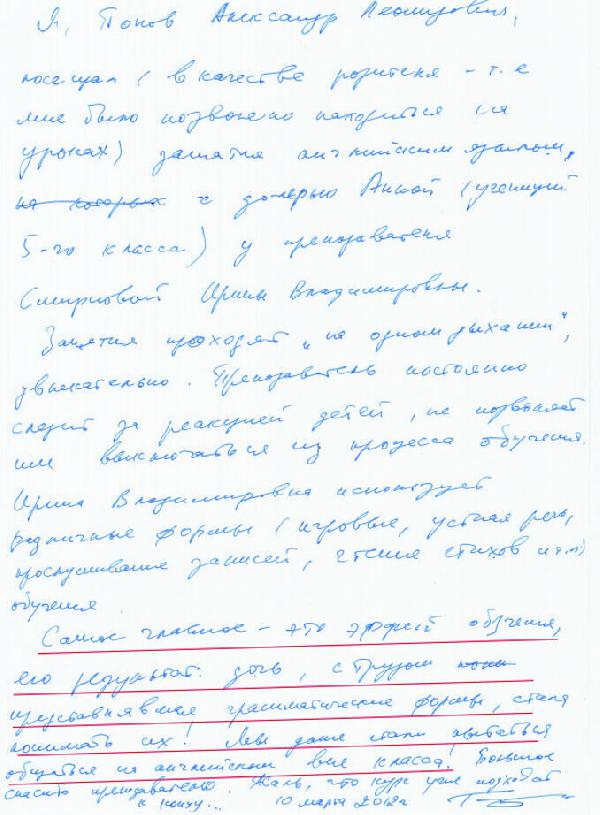 Я, Попов Александр Леонидович,
посещал (в качестве родителя - т.е
мне было позволено находиться на
уроках) занятия английским языком,
на которых с дочерью Анной (ученицей
5-го класса) у преподавателя
Смирновой Ирины Владимировны.
Занятия проходят „на одном дыхании",
увлекательно. Преподаватель постоянно
следит за реакцией детей, не позволяет
им выключаться из процесса обучения.
Ирина Владимировна использует
различные формы (игровые, устная речь,
прослушивание записей, чтение стихов и т.п)
обучения
Самое главное - это эффект обучения,
его результат: дочь, с трудом
представлявшая грамматические формы, стала
понимать их! Мы даже стали пытаться
общаться на английском вне класса! Большое
спасибо преподавателю. Жаль, что курс уже подходит
к концу... 10 марта 2012г